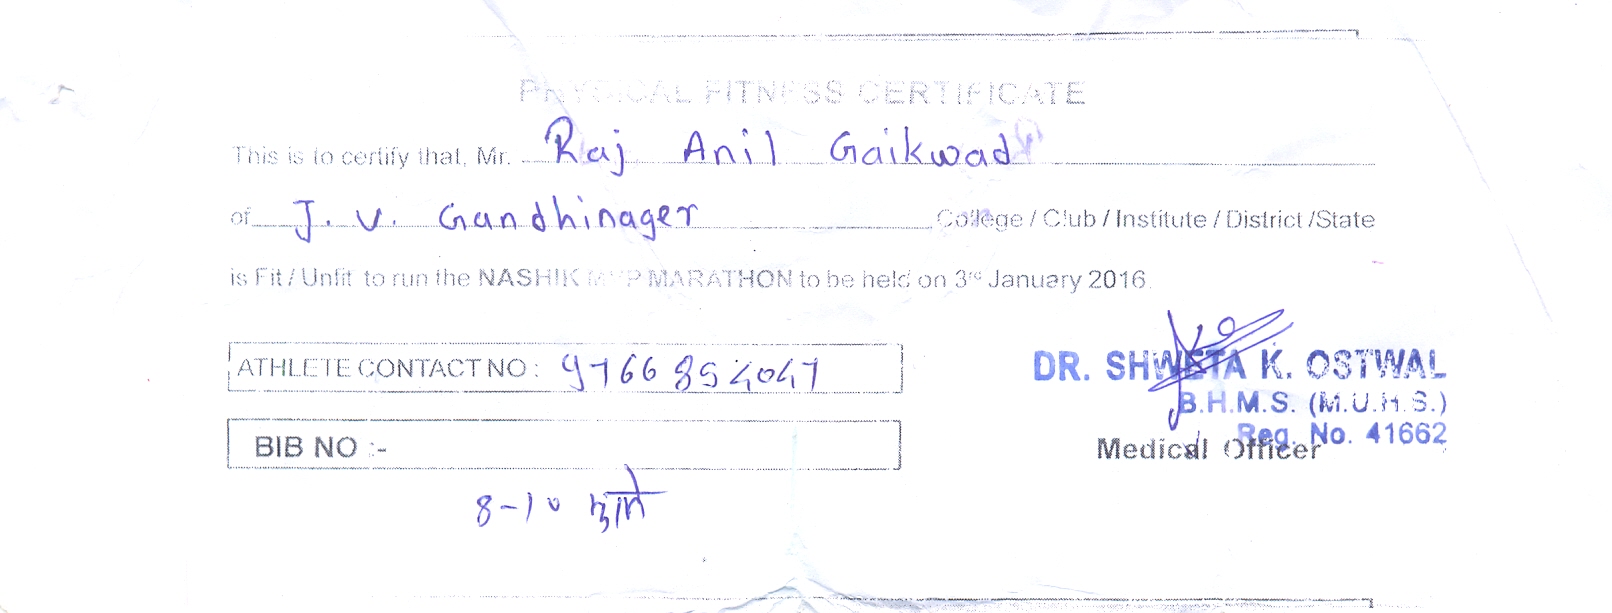 PHYSICAL FITNESS CERTIFICATE
This is to certify that, Mr. Raj Anil Gaikwad
of J. V. Gandhinager College / Club / Institute / District /State
is Fit / Unfit to run the NASHIK MVP MARATHON to be held on 3rd January 2016.
ATHLETE CONTACT NO : 9766854047
DR. SHWETA K. OSTWAL
B.H.M.S. (M.U.H.S.)
Reg. No. 41662
BIB NO :-
Medical Officer
8-10